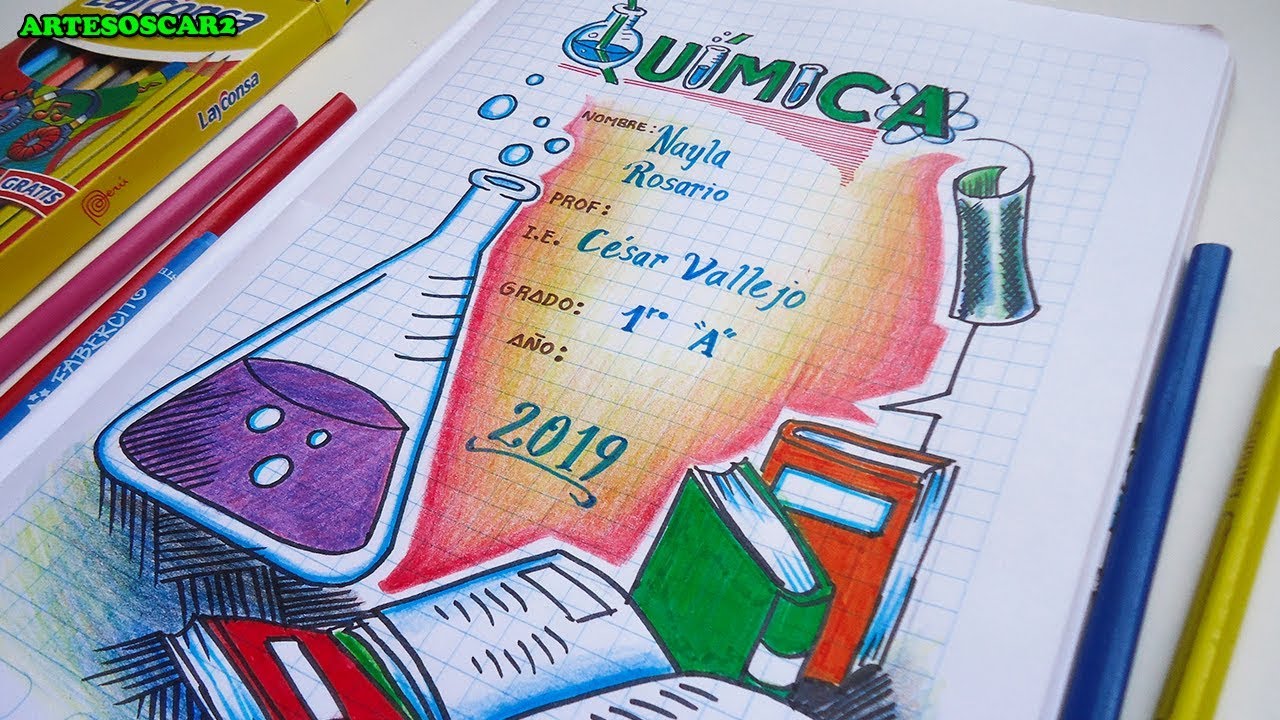 ARTESOSCAR2
LayConsa
LayConsa
GRATIS
Perú
FABERCITO
QUÍMICA
NOMBRE: Nayla
Rosario
PROF:
I.E. César Vallejo
GRADO: 1ro "A"
AÑO:
2019